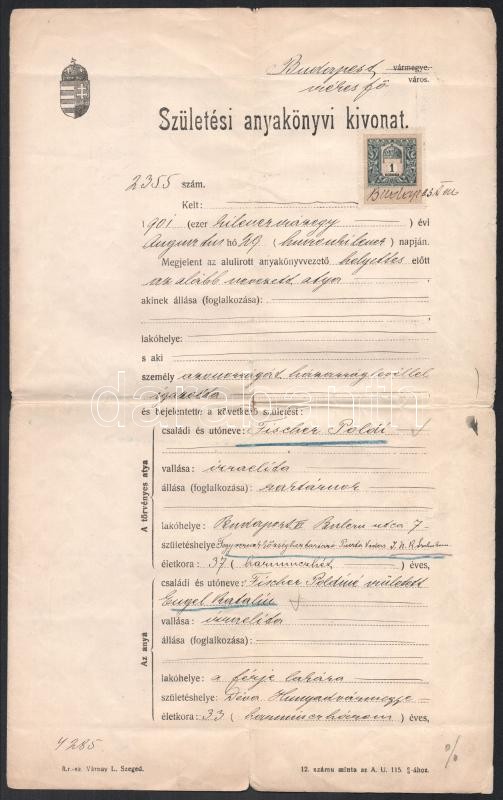 Budapest vármegye.
város.
székes fő
Születési anyakönyvi kivonat.
1
KORONA
2355 szám.
Kelt:
1901 (ezer kilenczszázegy) évi
Augusztus hó 29 (huszonkilencz) napján.
Megjelent az alulirott anyakönyvvezető helyettes előtt
az alább nevezett atya
akinek állása (foglalkozása):
lakóhelye:
s aki
személyazonosságát házasságlevéllel
igazolta
és bejelentette a következő születést:
A törvényes atya
családi és utóneve: Fischer Poldi
vallása: izraelita
állása (foglalkozása):
lakóhelye: Budapest VI utca 7
születéshelye:
életkora: 37 (harminczhét) éves,
Az anya
családi és utóneve: Fischer Poldiné született
Engel Katalin
vallása: izraelita
állása (foglalkozása):
lakóhelye: a férje lakása
születéshelye: Déva Hunyadvármegye
életkora: 33 (harminczhárom) éves,
4285
R.r.-sz. Várnay L. Szeged.
12. számu minta az A. U. 115. §-ához.
darabanth